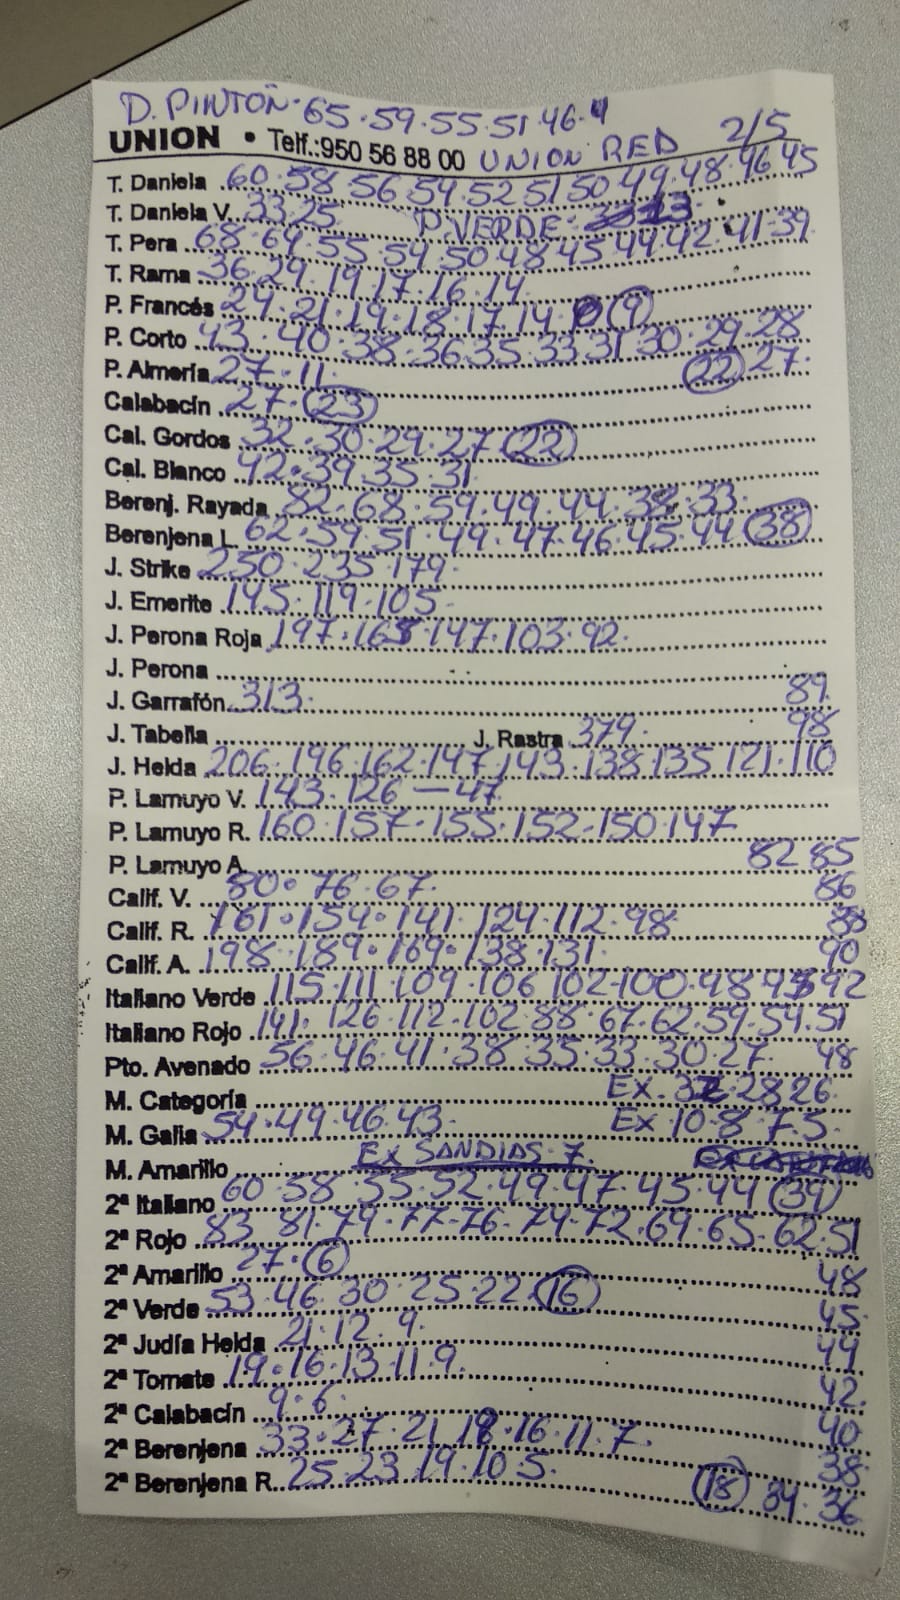 D. PINTON · 65 · 59 · 55 · 51 · 46 · 4
UNION • Telf.: 950 56 88 00 UNION RED 2/5
T. Daniela 60 · 58 · 56 · 54 · 52 · 51 · 50 · 49 · 48 · 46 · 45
T. Daniela V. 33 · 25 P. VERDE: 13
T. Pera 68 · 64 · 55 · 54 · 50 · 48 · 45 · 44 · 42 · 41 · 39
T. Rama 36 · 29 · 19 · 17 · 16 · 14
P. Francés 24 · 21 · 19 · 18 · 17 · 14 · (9)
P. Corto 43 · 40 · 38 · 36 · 35 · 33 · 31 · 30 · 29 · 28
P. Almería 27 · 11 (22) 27
Calabacín 27 · (23)
Cal. Gordos 32 · 30 · 29 · 27 (22)
Cal. Blanco 42 · 39 · 35 · 31
Berenj. Rayada 82 · 68 · 59 · 49 · 44 · 38 · 33
Berenjena L. 62 · 59 · 51 · 49 · 47 · 46 · 45 · 44 (38)
J. Strike 250 · 235 · 179
J. Emerite 195 · 119 · 105
J. Perona Roja 197 · 165 · 147 · 103 · 92
J. Perona
J. Garrafón 313 89
J. Tabella J. Rastra 379 98
J. Helda 206 · 196 · 162 · 147 · 143 · 138 · 135 · 121 · 110
P. Lamuyo V. 143 · 126 — 47
P. Lamuyo R. 160 · 157 · 155 · 152 · 150 · 147
P. Lamuyo A. 82 85
Calif. V. 80 · 76 · 67 86
Calif. R. 161 · 154 · 141 · 124 · 112 · 98 88
Calif. A. 198 · 189 · 169 · 138 · 131 90
Italiano Verde 115 · 111 · 109 · 106 · 102 · 100 · 98 · 93 92
Italiano Rojo 141 · 126 · 112 · 102 · 88 · 67 · 62 · 59 · 54 · 51
Pto. Avenado 56 · 46 · 41 · 38 · 35 · 33 · 30 · 27 48
M. Categoría Ex · 32 · 28 26
M. Galia 54 · 49 · 46 · 43 Ex 10 · 8 · 7 · 5
M. Amarillo Ex SANDIAS · 7
2ª Italiano 60 · 58 · 55 · 52 · 49 · 47 · 45 · 44 (39)
2ª Rojo 83 · 81 · 79 · 77 · 76 · 74 · 72 · 69 · 65 · 62 · 51
2ª Amarillo 27 · (6) 48
2ª Verde 53 · 46 · 30 · 25 · 22 (16) 45
2ª Judía Helda 21 · 12 · 9 44
2ª Tomate 19 · 16 · 13 · 11 · 9 42
2ª Calabacín 9 · 6 40
2ª Berenjena 33 · 27 · 21 · 18 · 16 · 11 · 7 38
2ª Berenjena R. 25 · 23 · 19 · 10 · 5 (18) 34 · 36